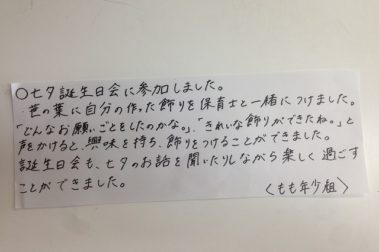 ○七夕誕生日会に参加しました。
笹の葉に自分の作った飾りを保育士と一緒につけました。
「どんなお願いごとをしたのかな。」、「きれいな飾りができたね。」と
声をかけると、興味を持ち、飾りをつけることができました。
誕生日会も、七夕のお話を聞いたりしながら楽しく過ごす
ことができました。
〈もも年少組〉